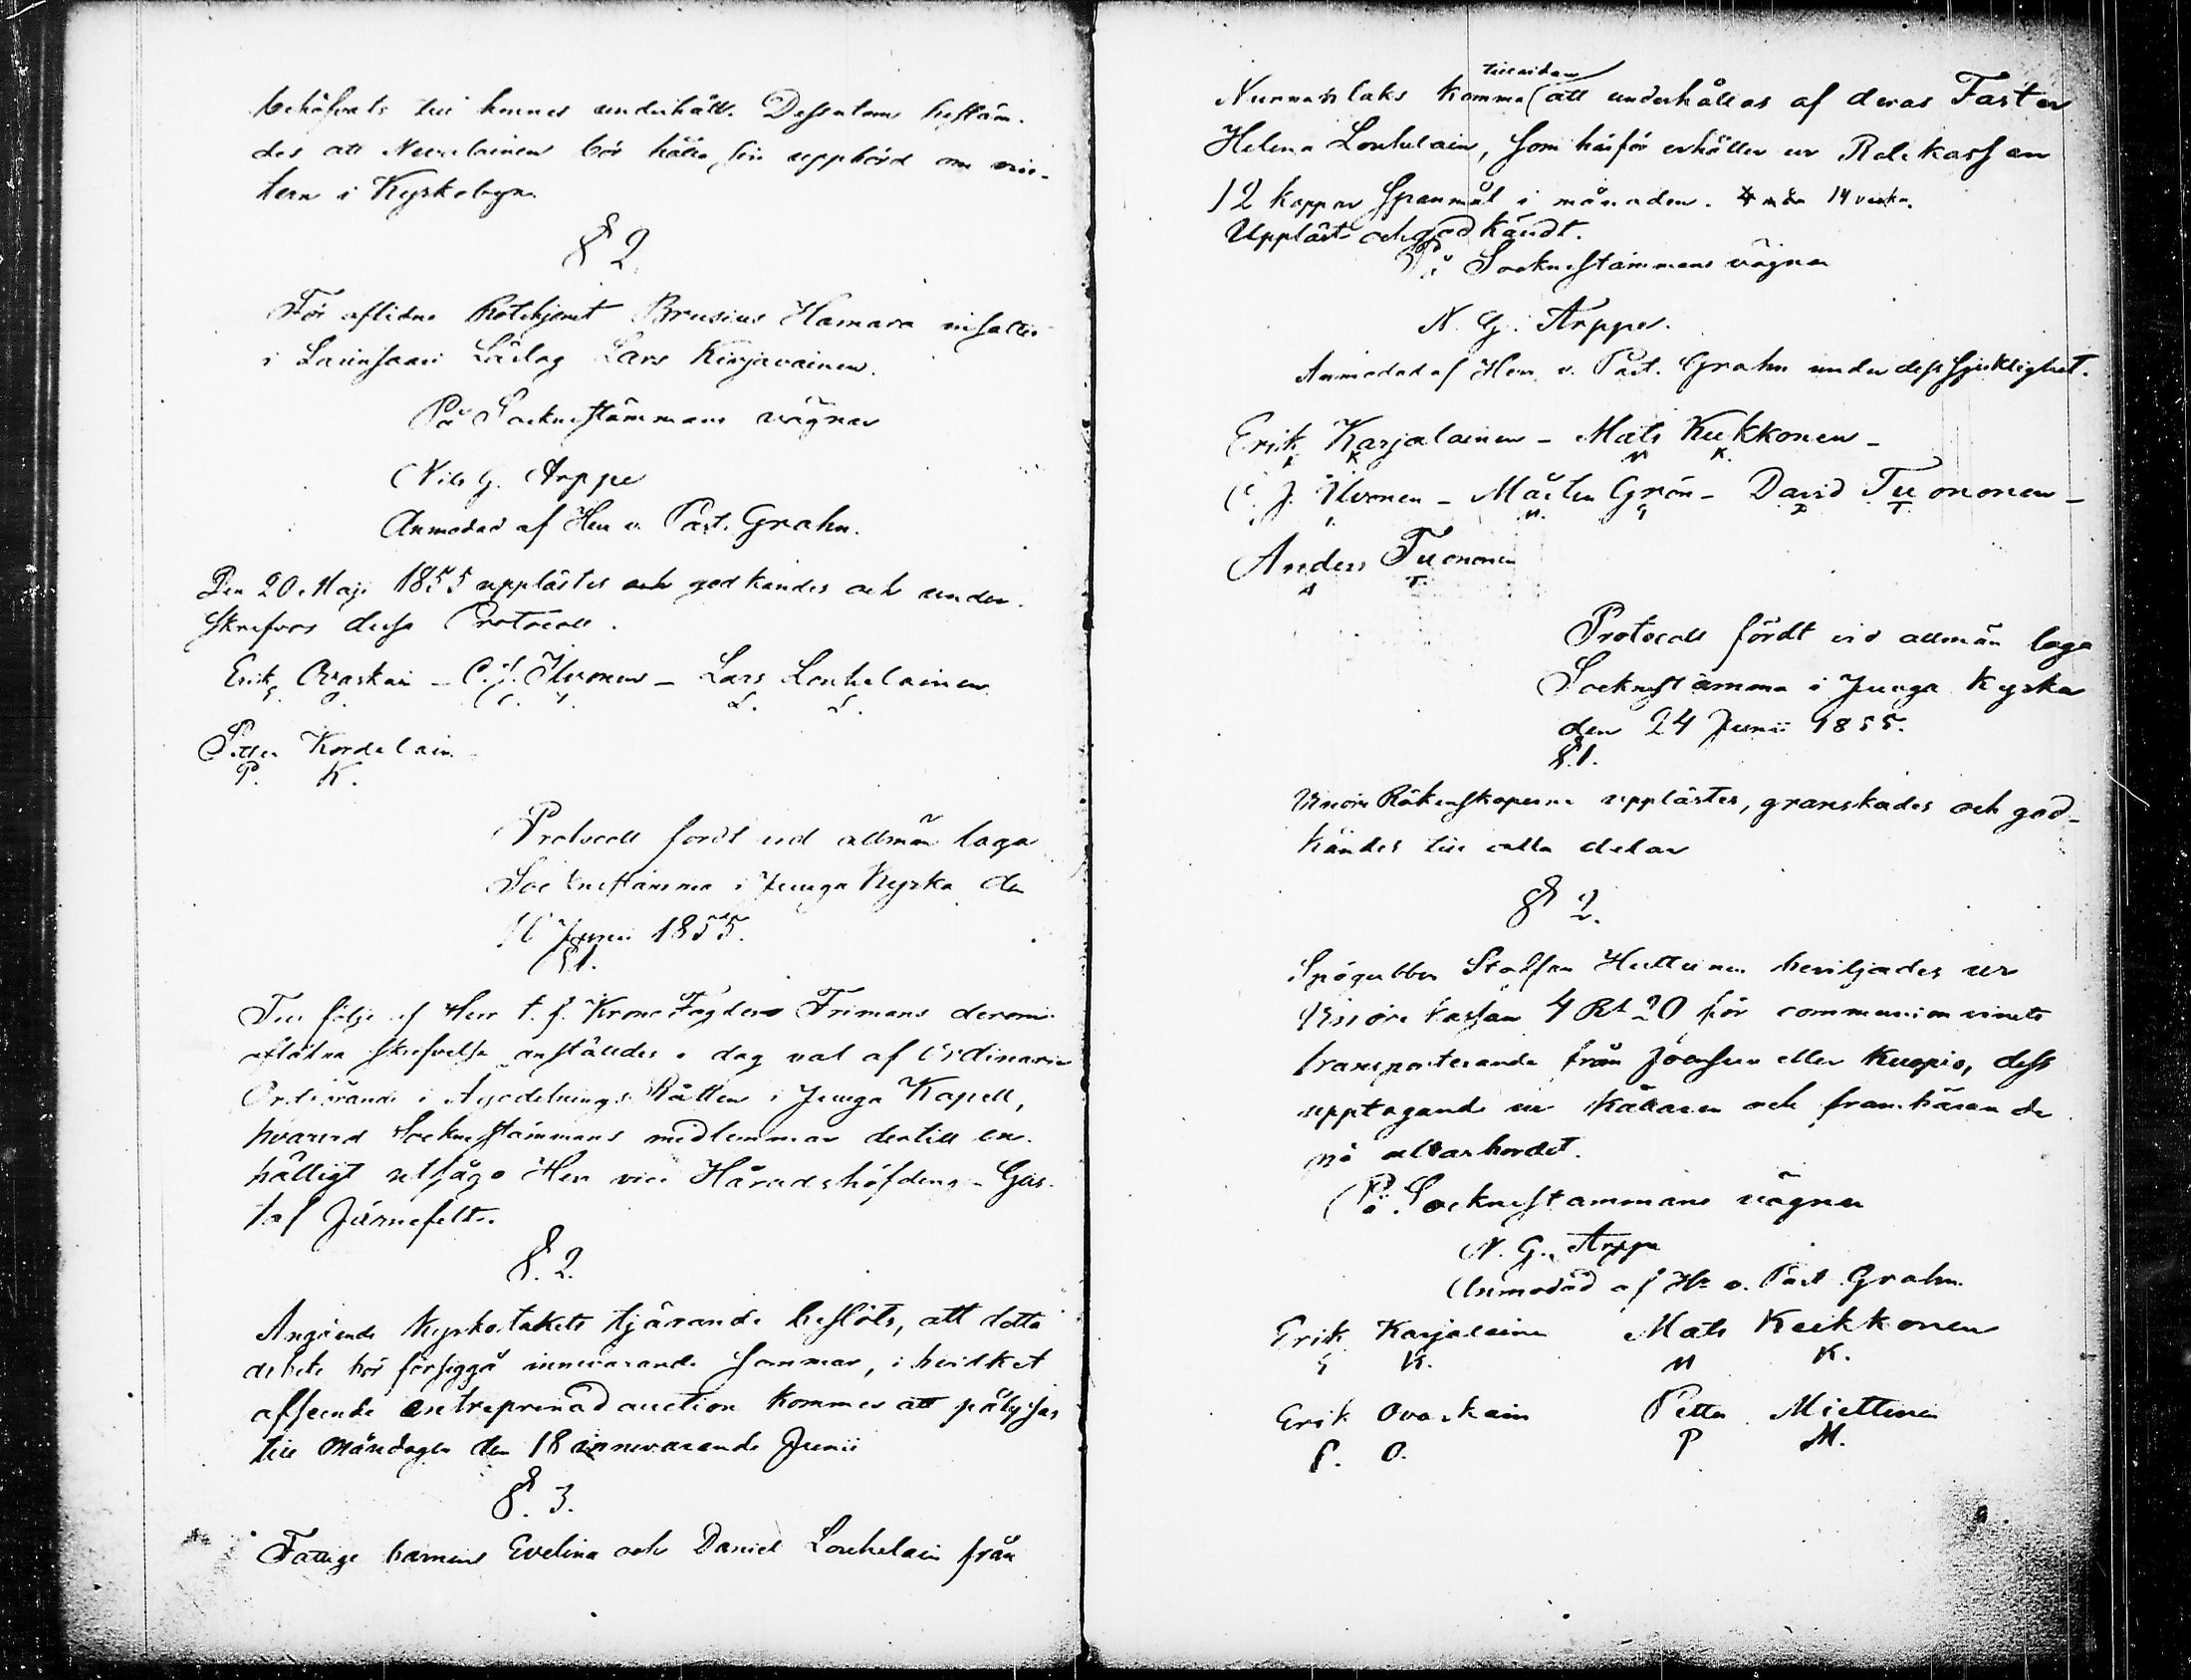 behöfvats till hennes underhåll. Dessutom bestäm-
des att Nevalainen bör hålla sin uppbörd om vin-
tern i Kyrkobyn.
§ 2.
För aflidne Rotehjonet Brusius Hamara insattes
i Larinsaari Läslag Lars Kinjavainen.
På Sockne stämmans vägnar
Nils G. Arppe
Anmodad af Herr v. Past. Grahn.
Den 20 Maji 1855 upplästes och godkändes och under-
skrefvos dessa Protocoll.
Erik Ovaskain - C. J. Ilvonen - Lars Louhelainen
E. O. C. I. L. L.
Petter Kordelain
P. K.
Protocoll fördt vid allmän laga
Socknestämma i Juuga Kyrka den
10 Junii 1855.
§ 1.
Till följe af Herr t. f. Krono Fogden Frimans derom
aflåtna skrifvelse anställdes i dag val af Ordinarie
Ordförande i Ägodelnings Rätten i Juuga Kapell,
hvarvid Socknestämmans medlemmar dertill en-
hälligt utsågo Herr vice Häradshöfding Gus-
taf Järnefelt.
§. 2.
Angående Kyrkotakets tjärande beslöts, att detta
arbete bör försiggå innevarande sommar, i hvilket
afseende entreprenad auction kommer att pålysas
till Måndagen den 18 innevarande Junii
§. 3.
Fattige barnens Evelina och Daniel Louhelain från
Nunnanlaks komma tillsvidare att underhållas af deras Faster
Helena Louhelain, som härför erhåller ur Rotekassan
12 kappar Spanmål i månaden.
Uppläst och godkändt.
På Socknestämmans vägnar
N. G. Arppe.
Anmodad af Herr v. Past. Grahn under dess sjuklighet.
Erik Karjalainen - Mats Kukkonen -
E K M K.
C. J. Ilvonen - Mårten Grön - David Tuononen -
C. I. M. G D T
Anders Tuononen
A T.
Protocoll fördt vid allmän laga
Socknestämma i Juuga Kyrka
den 24 Junii 1855.
§. 1.
Räkenskaperne upplästes, granskades och god-
kändes till alla delar
§ 2.
Spögubben Staffan Huttunen beviljades ur
kassan 4 Rl 20 för communion vinets
transporterande från Joensuu eller Kuopio, dess
upptagande ur källaren och frambärande
på altarbordet.
På Socknestämmans vägnar
N. G. Arppe
Anmodad af Hr v. Past. Grahn.
Erik Karjalainen Mats Kukkonen
E K. M K.
Erik Ovaskain Petter Miettinen
E. O. P M.